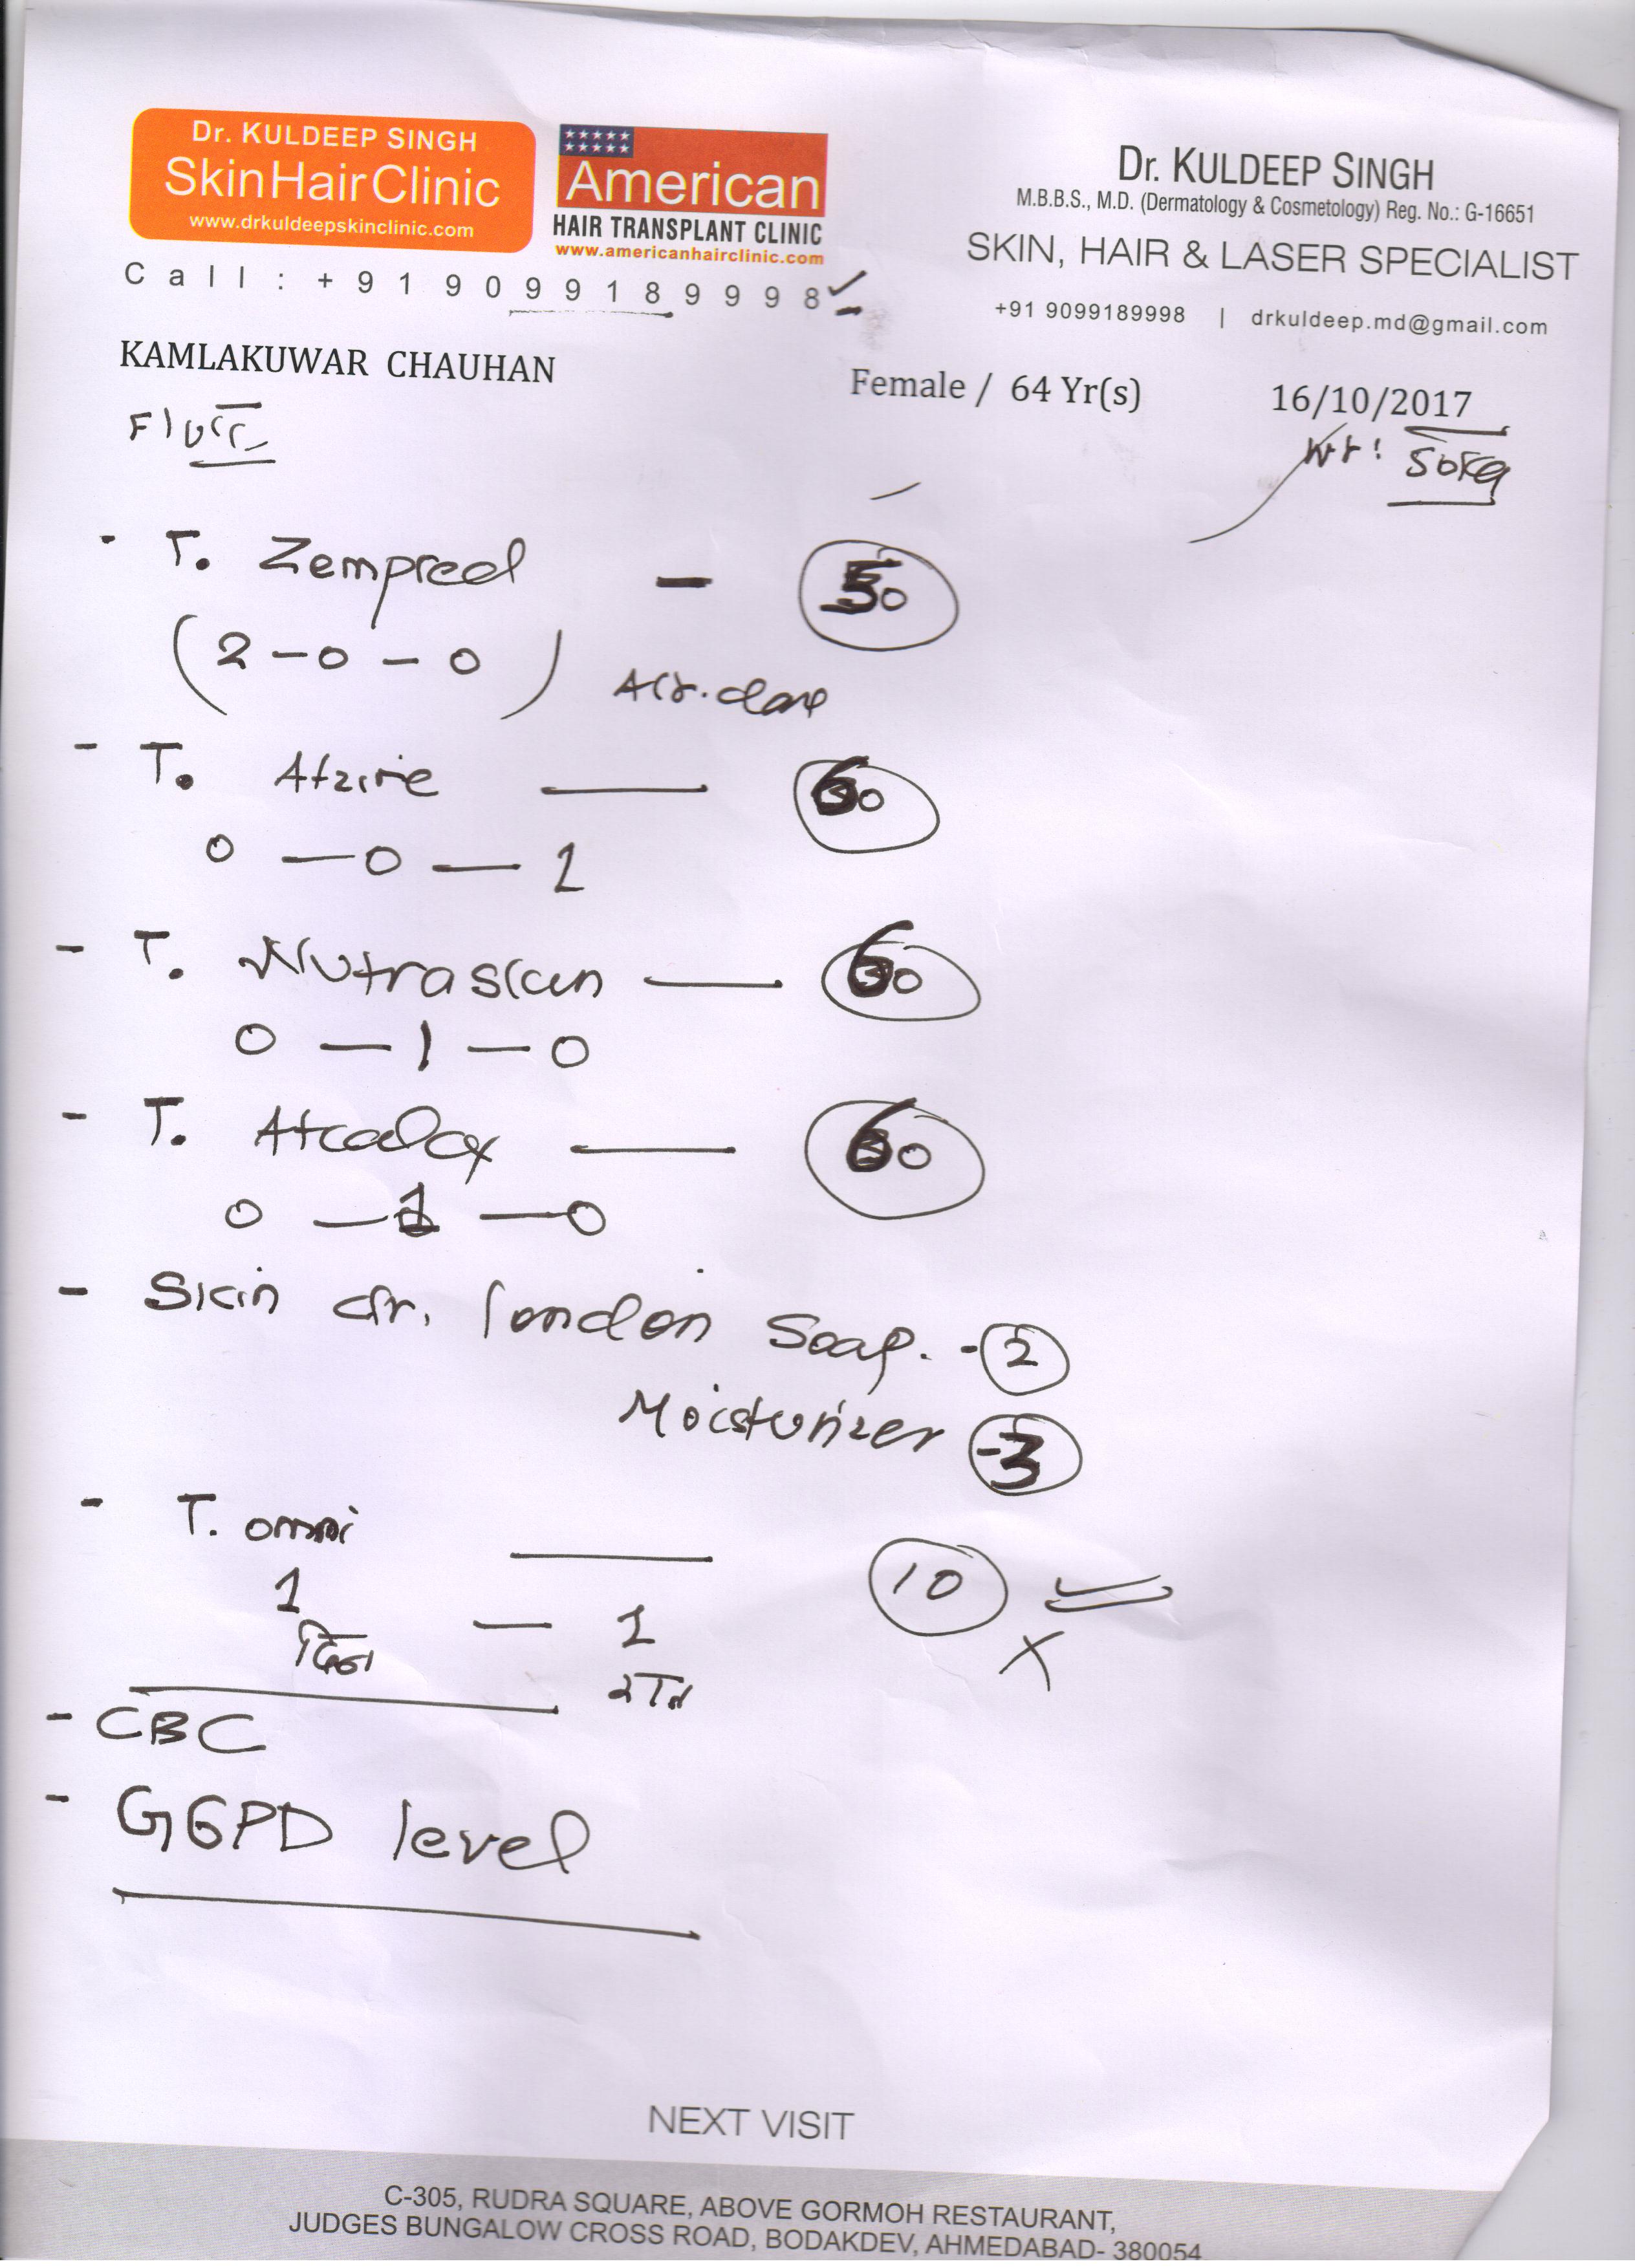 Dr. KULDEEP SINGH
SkinHairClinic
www.drkuldeepskinclinic.com
American
HAIR TRANSPLANT CLINIC
www.americanhairclinic.com
Call : +91 9099189998
Dr. KULDEEP SINGH
M.B.B.S., M.D. (Dermatology & Cosmetology) Reg. No.: G-16651
SKIN, HAIR & LASER SPECIALIST
+91 9099189998 | drkuldeep.md@gmail.com
KAMLAKUWAR CHAUHAN Female / 64 Yr(s) 16/10/2017
Wt: 50kg
- T. Zempred - 50
(2-0-0)
- T. Atzine — 60
0 — 0 — 1
- T. Nutraskin — 60
0 — 1 — 0
- T. Atcalox — 60
0 — 1 — 0
- Skin dr. london Soap. - 2
Moisturizer - 3
- T. omni — 10
1 — 1
दिन
- CBC
- G6PD level
NEXT VISIT
C-305, RUDRA SQUARE, ABOVE GORMOH RESTAURANT,
JUDGES BUNGALOW CROSS ROAD, BODAKDEV, AHMEDABAD- 380054